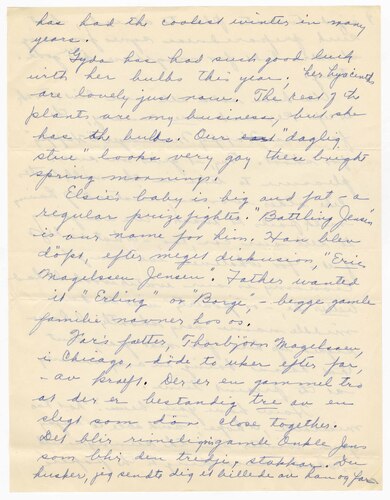 has had the coolest winter in many
years.
Gyda has had such good luck
with her bulbs this year; her hyacinths
are lovely just now. The rest of the
plants are my business, but she
has the bulbs. Our east "daglig
stue" looks very gay these bright
spring mornings.
Elsie's baby is big and fat, - a
regular prizefighter. "Battling Jensen"
is our name for him. Han blev
döpt, efter meget diskusion, "Eric
Magelssen Jensen". Father wanted
it "Erling" or "Borge", - begge gamle
familie navner hos os.
Far's fatter, Thorbjörn Magelssen,
i Chicago, döde to uker efter far,
- av kræft. Der er en gammel tro
at der er bestandig tre av en
slegt som dör close together.
Det blir rimeligvis gamle Onkle Jens
som blir den tredje, stakkar. Du
husker, jeg sendte dig et billede av han og Far